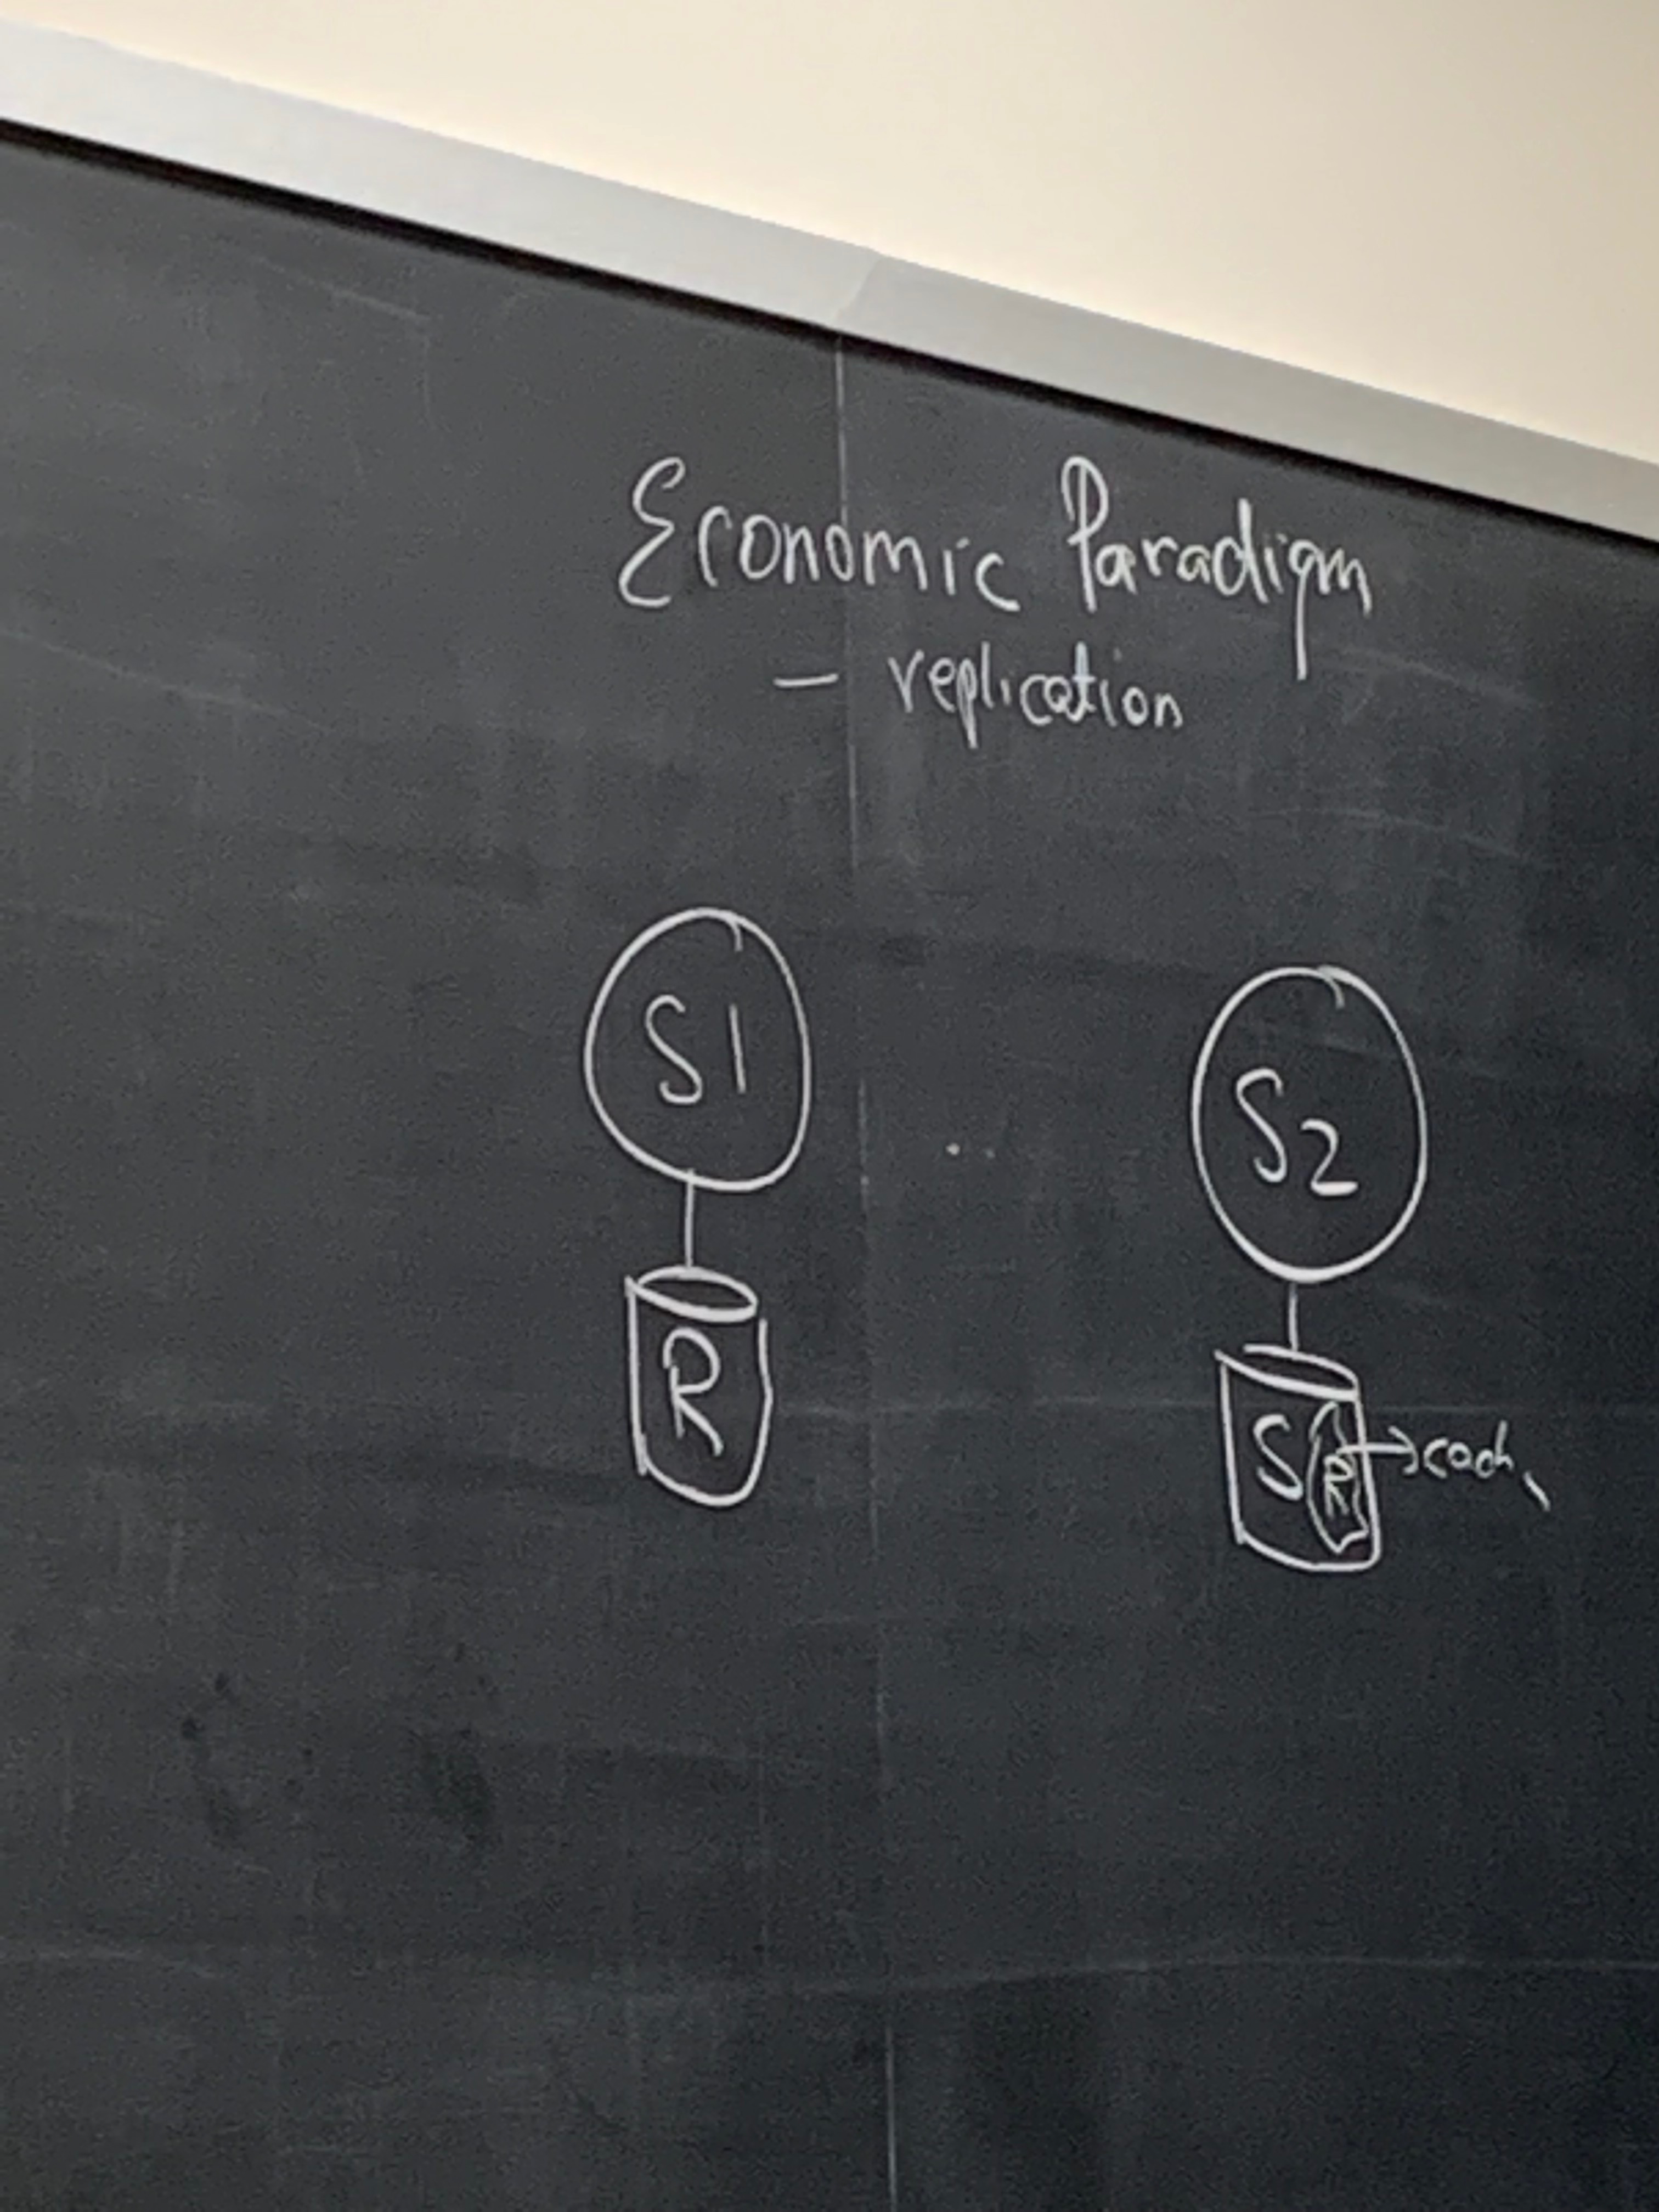 Economic Paradigm
— replication
S1
S2
R
S R → cach